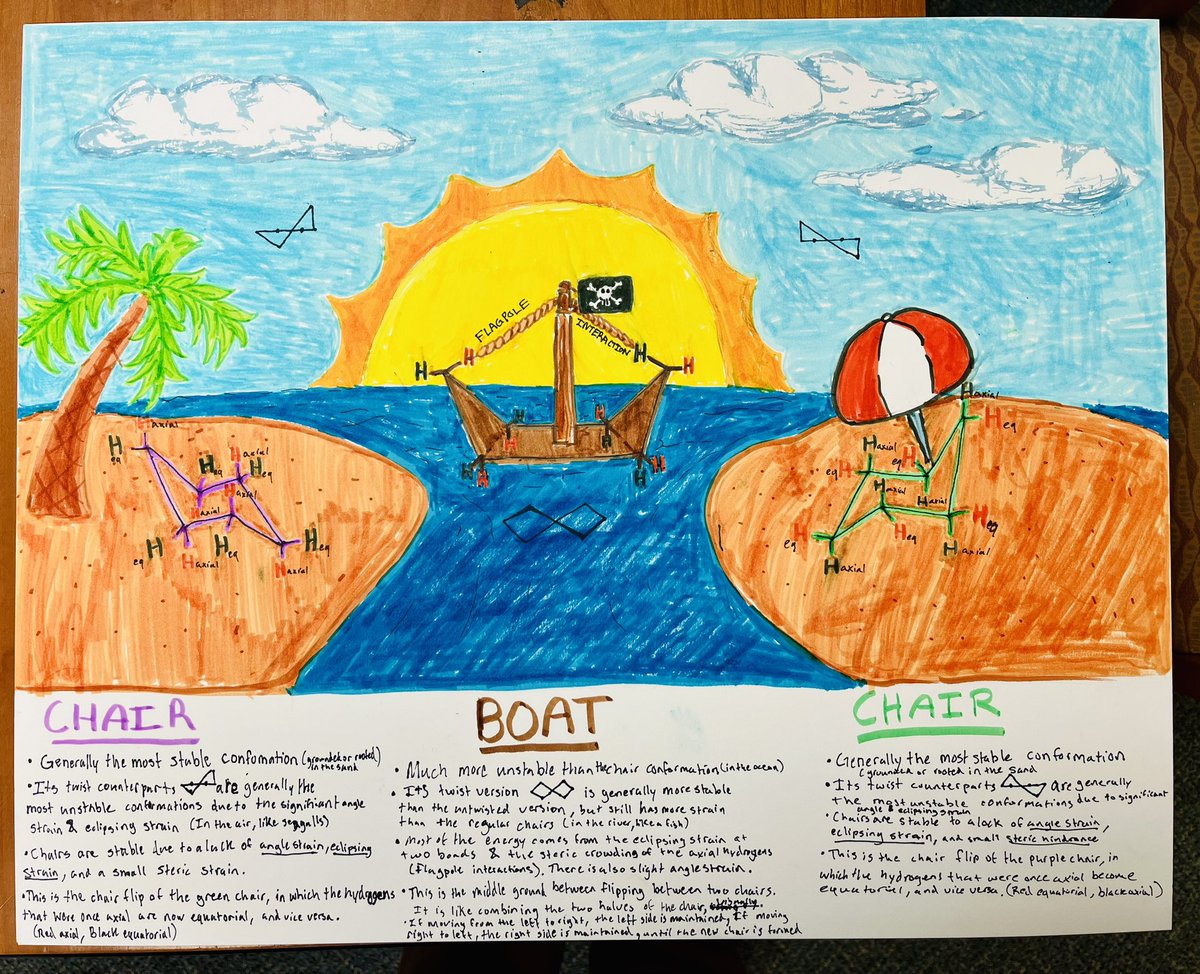 FLAGPOLE
INTERACTION
H
H
H
H
H axial
H eq
H eq
H axial
H eq
H axial
axial
H eq
H axial
H eq
H eq
H axial
H axial
H eq
H axial
eq H
eq H
H axial
H axial
H eq
H eq
H eq
H axial
H axial
CHAIR
• Generally the most stable confomation (grounded or rooted)
in the sand
• Its twist counterparts are generally the
most unstable conformations due to the significant angle
strain & eclipsing strain (In the air, like seagulls)
• Chairs are stable due to a lack of angle strain, eclipsing
strain, and a small steric strain.
• This is the chair flip of the green chair, in which the hydrogens
that were once axial are now equatorial, and vice versa.
(Red axial, Black equatorial)
BOAT
• Much more unstable than the chair conformation (in the ocean)
• Its twist version is generally more stable
than the untwisted version, but still has more strain
than the regular chairs (in the river, like a fish)
• Most of the energy comes from the eclipsing strain at
two bonds & the steric crowding of the axial hydrogens
(flagpole interactions). There is also slight angle strain.
• This is the middle ground between flipping between two chairs.
It is like combining the two halves of the chair,
If moving from the left to right, the left side is maintained, If moving
right to left, the right side is maintained, until the new chair is formed
CHAIR
• Generally the most stable conformation
(grounded or rooted in the sand
• Its twist counterparts are generally
the most unstable conformations due to significant
angle & eclipsing strain
• Chairs are stable to a lack of angle strain,
eclipsing strain, and small steric hindrance
• This is the chair flip of the purple chair, in
which the hydrogens that were once axial become
equatorial, and vice versa. (Red equatorial, black axial)